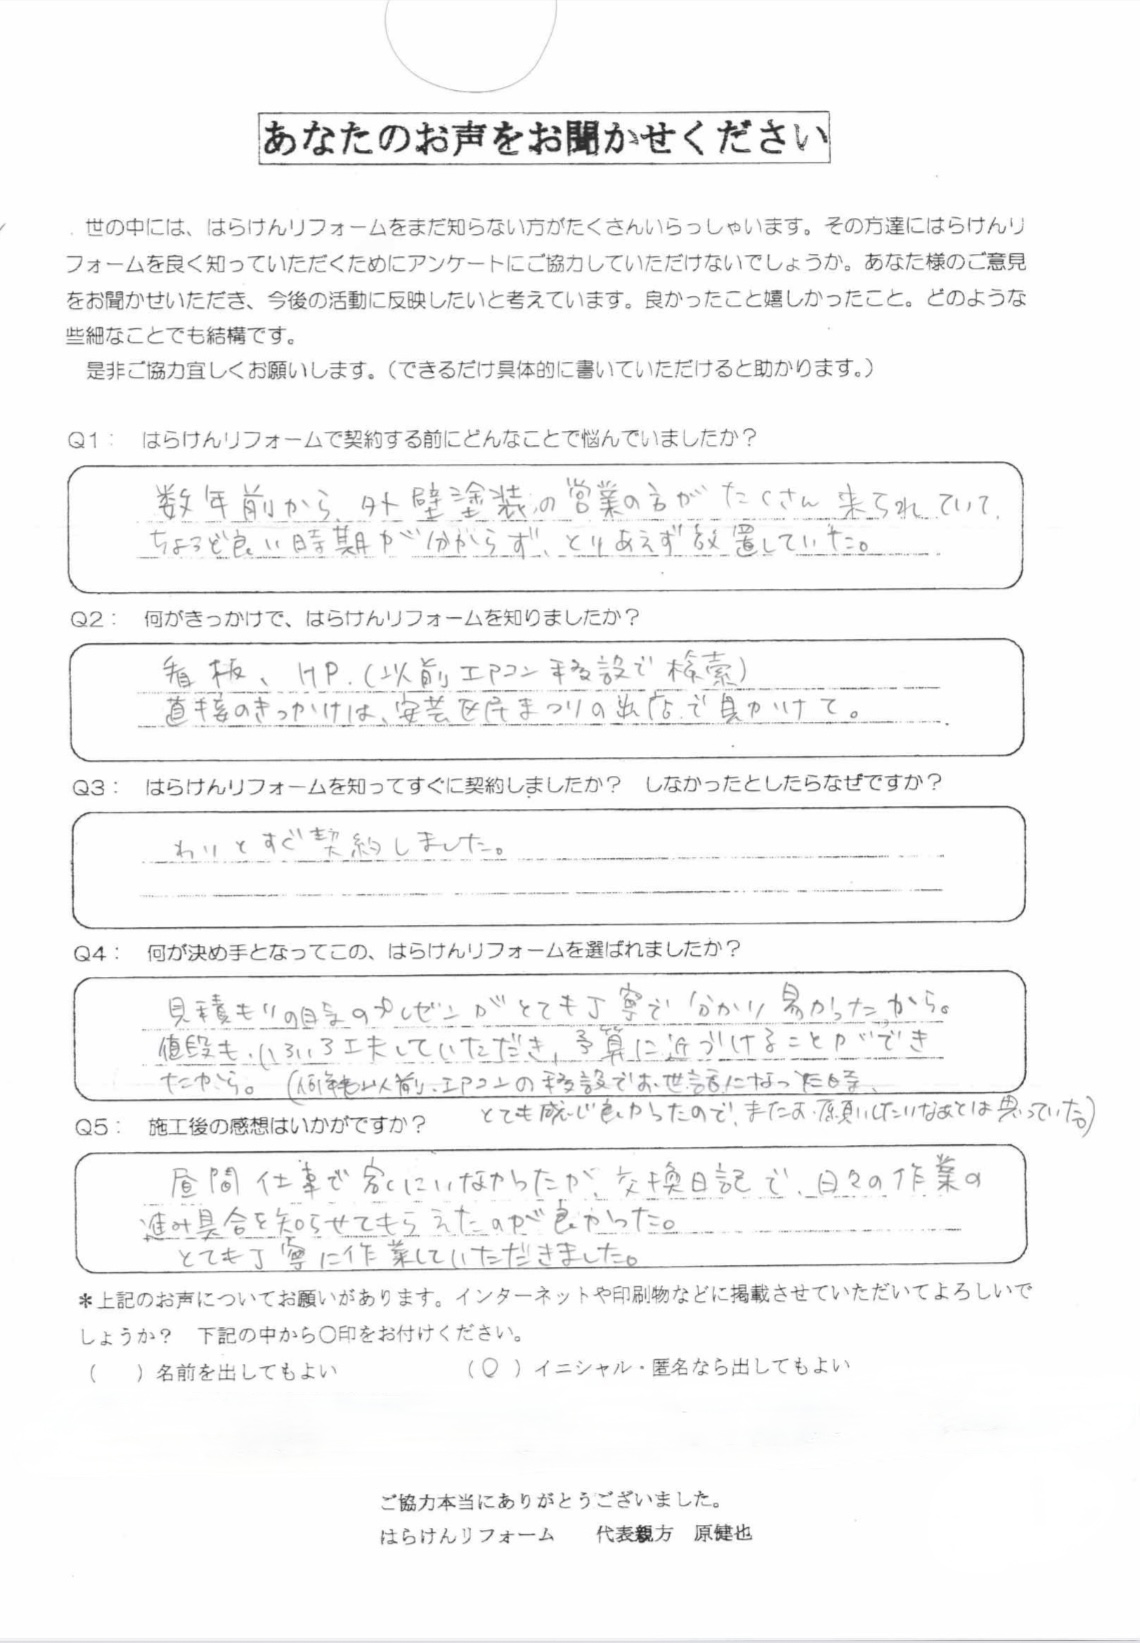 あなたのお声をお聞かせください
世の中には、はらけんリフォームをまだ知らない方がたくさんいらっしゃいます。その方達にはらけんリ
フォームを良く知っていただくためにアンケートにご協力していただけないでしょうか。あなた様のご意見
をお聞かせいただき、今後の活動に反映したいと考えています。良かったこと嬉しかったこと。どのような
些細なことでも結構です。
是非ご協力宜しくお願いします。(できるだけ具体的に書いていただけると助かります。)
Q1： はらけんリフォームで契約する前にどんなことで悩んでいましたか？
数年前から、外壁塗装の営業の方がたくさん来られていて、
ちょうど良い時期が分からず、とりあえず放置していた。
Q2： 何がきっかけで、はらけんリフォームを知りましたか？
看板、HP.(以前エアコン移設で検索)
直接のきっかけは、安芸区民まつりの出店で見かけて。
Q3： はらけんリフォームを知ってすぐに契約しましたか？ しなかったとしたらなぜですか？
わりとすぐ契約しました。
Q4： 何が決め手となってこの、はらけんリフォームを選ばれましたか？
見積もりの時のプレゼンがとても丁寧で分かり易かったから。
値段も、いろいろ工夫していただき、予算に近づけることができ
たから。(何年も以前、エアコンの移設でお世話になった時、
とても感じ良かったので、またお願いしたいなあとは思っていた。)
Q5： 施工後の感想はいかがですか？
昼間仕事で家にいなかったが、交換日記で、日々の作業の
進み具合を知らせてもらえたのが良かった。
とても丁寧に作業していただきました。
＊上記のお声についてお願いがあります。インターネットや印刷物などに掲載させていただいてよろしいで
しょうか？ 下記の中から〇印をお付けください。
( ) 名前を出してもよい (〇) イニシャル・匿名なら出してもよい
ご協力本当にありがとうございました。
はらけんリフォーム 代表親方 原健也